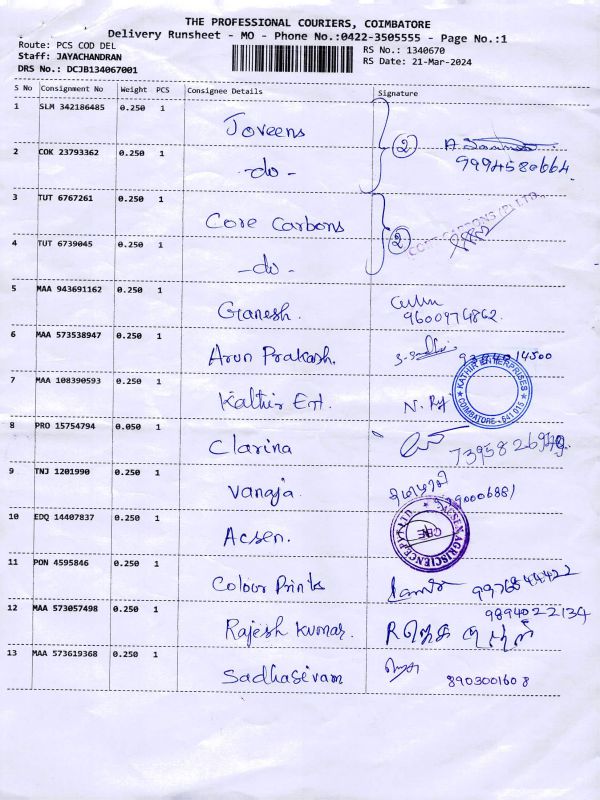 THE PROFESSIONAL COURIERS, COIMBATORE
Delivery Runsheet - MO - Phone No.:0422-3505555 - Page No.:1
Route: PCS COD DEL
Staff: JAYACHANDRAN
DRS No.: DCJB134067001
RS No.: 1340670
RS Date: 21-Mar-2024
S No Consignment No Weight PCS Consignee Details Signature
1 SLM 342186485 0.250 1 Joveens
2 COK 23793362 0.250 1 -do- 2 9994580664
3 TUT 6767261 0.250 1 Core Carbons CORE CARBONS (P) LTD
4 TUT 6739045 0.250 1 -do- 2
5 MAA 943691162 0.250 1 Ganesh. 9600974862
6 MAA 573538947 0.250 1 Arun Prakash.
7 MAA 108390593 0.250 1 Kathir Ent. KATHIR ENTERPRISES COIMBATORE - 641 015
8 PRO 15754794 0.050 1 Clarina
9 TNJ 1201990 0.250 1 Vanaja.
10 EDQ 14407837 0.250 1 Acsen. ACSEN AGRISCIENCE PVT LTD. CBE
11 PON 4595846 0.250 1 Colour Prints
12 MAA 573057498 0.250 1 Rajesh Kumar. 9894022134
13 MAA 573619368 0.250 1 Sadhasivam 8903001608